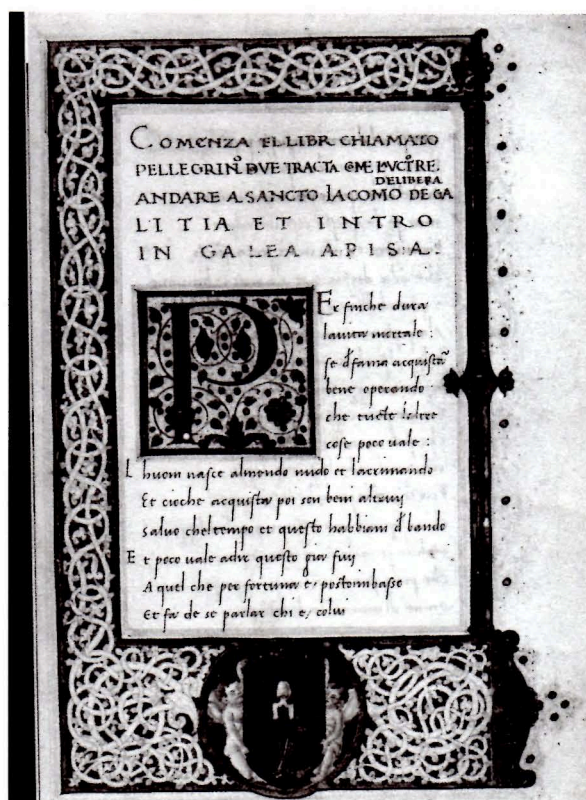 COMENZA EL LIBR CHIAMATO
PELLEGRINº DVE TRACTA COME LAVCTRE.
DELIBERA
ANDARE A SANCTO IACOMO DE GA
LITIA ET INTRO
IN GALEA A PISA.
PEr finche dura
la uita mortale :
se d fama acquista
bene operando
che tucte laltre
cose poco uale :
L huom nasce almondo nudo et lacrimando
Et cioche acquista poi son beni altruij
Saluo chel tempo et questo habbiam d bando
E t poco uale adir questo gia fuij
A quel che per fortuna e, posto in basso
Et fa de se parlar chi e, colui